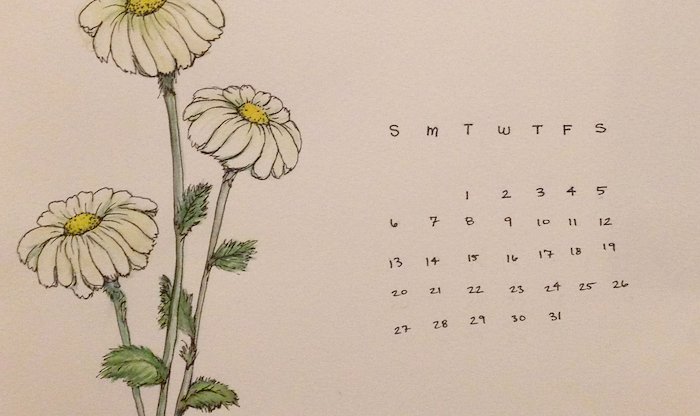 S M T W T F S
1 2 3 4 5
6 7 8 9 10 11 12
13 14 15 16 17 18 19
20 21 22 23 24 25 26
27 28 29 30 31